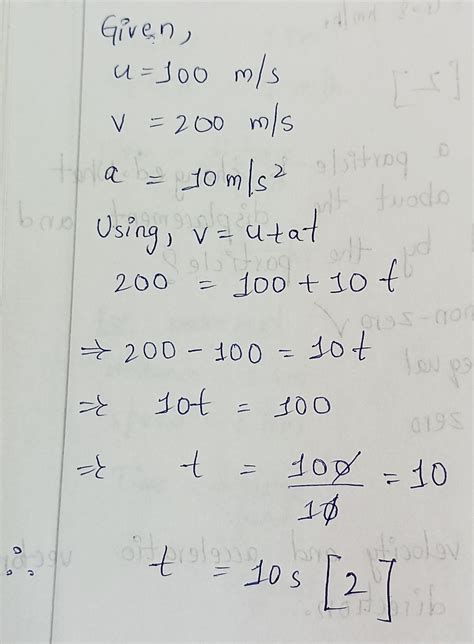 Given,
u = 100 m/s
v = 200 m/s
a = 10 m/s²
Using, v = u + at
200 = 100 + 10 t
⇒ 200 - 100 = 10t
⇒ 10t = 100
⇒ t = 100/10 = 10
∴ t = 10s [2]